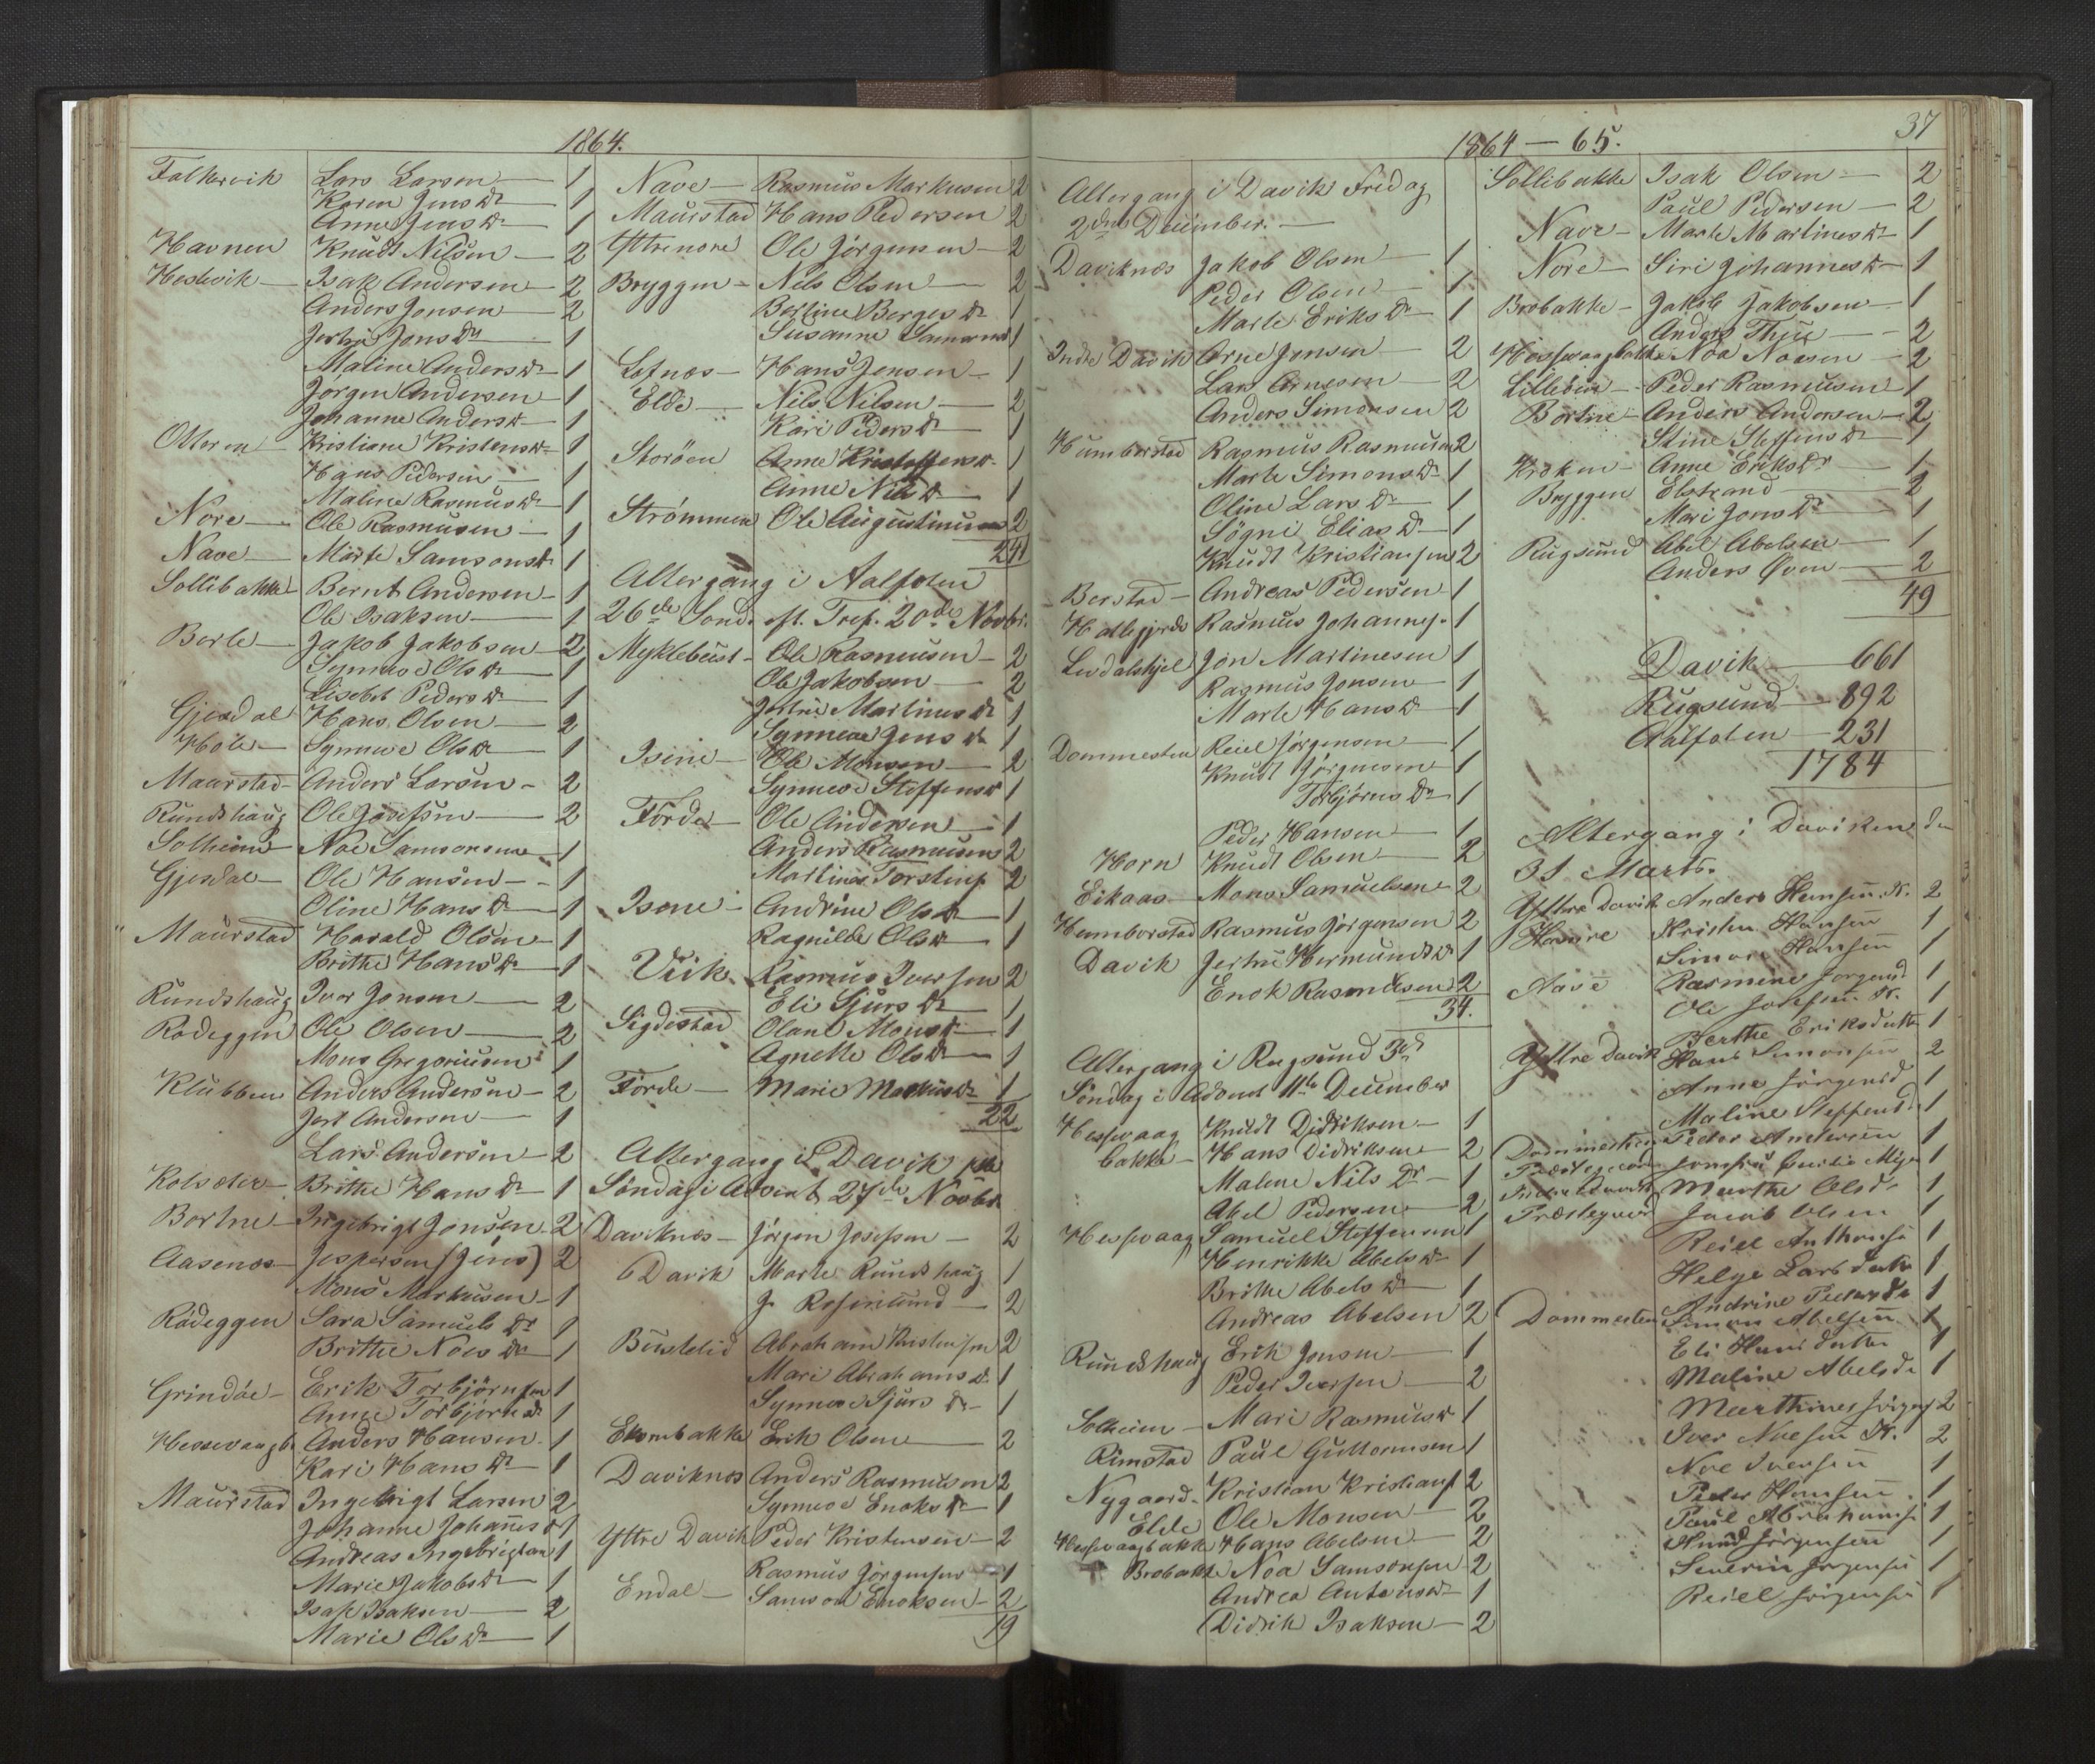 1864.
Falkevik Lars Larsen 1
Karen Jensdr 1
Anne Jensdr 1
Havnen Knudt Nilsen 2
Heslevik Isak Andersen 2
Anders Jonsen 2
Jertru Jonsdr 1
Maline Andersdr 1
Jørgen Andersen 1
Johanne Andersdr 1
Otteren Kristiane Kristensdr 1
Hans Pedersen 1
Maline Rasmusdr 1
Nore Ole Rasmusen 1
Nave Marte Samsonsdr 1
Sollibakke Bernt Andersen 1
Ole Isaksen 1
Berle Jakob Jakobsen 2
Synneve Olsdr 1
Lisebet Pedersdr 1
Gjesdal Hans Olsen 2
Hole Synneve Olsdr 1
Maurstad Anders Larsen 2
Rundshaug Ole Josefsen 2
Solheim Noe Samsonsen 1
Gjesdal Ole Hansen 1
Oline Hansdr 1
Maurstad Harald Olsen 1
Brithe Hansdr 1
Rundshaug Iver Jonsen 2
Rødeggen Ole Olsen 2
Mons Gregoriusen 1
Klubben Anders Andersen 2
Jert Andersen 1
Lars Andersen 2
Kolset Brithe Hansdr 1
Bortne Ingebrigt Jonsen 2
Aasenes Jespersen (Jens) 2
Mons Markusen 1
Rødeggen Sara Samuelsdr 1
Brithe Noesdr 1
Grindøe Erik Torbjørnsen 1
Anne Torbjørnsdr 1
Hessevaagb Anders Hansen 1
Kari Hansdr 1
Maurstad Ingebrigt Larsen 2
Johanne Johannesdr 1
Andreas Ingebrigtsen 1
Marie Jakobsdr 1
Isak Isaksen 2
Marie Olsdr 1
Nave Rasmus Markusen 2
Maurstad Hans Pedersen 2
Yttrenore Ole Jørgensen 2
Bryggen Nels Olsen 2
Bertine Børgesdr 1
Susanne 1
Lefnæs Hans Jensen 1
Elde Nils Nilsen 2
Kari Pedersdr 1
Storøen Anne Kristoffersdr 1
Anne Nilsdr 1
Strømmen Ole Augustinusen 2
241
Altergang i Aalfoten
26de Sønd. eft. Tref. 20de Novbr.
Myklebust Ole Rasmusen 2
Ole Jakobsen 2
Jertru Martinusdr 1
Synneve Jensdr 1
Isene Ole Monsen 2
Synneve Steffensdr 1
Førde Ole Andersen 1
Anders Rasmusen 2
Martines Torstens. 2
Isene Andrine Olsdr 1
Ragnilde Olsdr 1
Viik Rasmus Iversen 2
Eli Sjursdr 1
Sigdestad Olane Monsdr 1
Agnethe Olsdr 1
Førde Marie Markusdr 1
22
Altergang i Davik 1ste
Søndag i Advent 27de Novbr.
Daviknæs Jørgen Josefsen 2
Davik Marte Rundshaug 1
J. Rosenlund 2
Bustelid Abraham Kristensen 2
Mari Abrahamsdr 1
Synneve Sjursdr 1
Ekornbakke Erik Olsen 2
Daviknæs Anders Rasmusen 2
Synneve Enoksdr 1
Yttre Davik Peder Kristensen 2
Rasmus Jørgensen 1
Endal Samson Enoksen 2
19
37
1864 — 65.
Altergang i Davik Fredag
2den December.
Daviknæs Jakob Olsen 1
Peder Olsen 1
Marte Eriksdr 1
Indre Davik Arne Jonsen 2
Lars Arnesen 2
Anders Simonsen 2
Humborstad Rasmus Rasmusen 2
Marte Simonsdr 1
Oline Larsdr 1
Søgni Eliasdr 1
Knudt Kristiansen 2
Berstad Andreas Pedersen 1
Hallefjorde Rasmus Johannes. 1
Levdalskjel Jon Martinesen 1
Rasmus Jonsen 1
Marte Hansdr 1
Dommesten Reiel Jørgensen 1
Knudt Jørgensen 1
Torbjørnsdr 1
Peder Hansen 1
Horn Knudt Olsen 2
Eikaas Mons Samuelsen 2
Humborstad Rasmus Jørgensen 2
Davik Jertru Hermundsdr 1
Enok Rasmusen 2
34.
Altergang i Rugsund 3de
Søndag i Advent 11te December
Hessevaag Knudt Didriksen 1
bakke Hans Didriksen 2
Malene Nilsdr 1
Abel Pedersen 2
Hessevaag Samuel Steffensen 1
Henrikke Abelsdr 1
Brithe Abelsdr 1
Andreas Abelsen 2
Rundshaug Erik Jonsen 1
Peder Iversen 2
Solheim Mari Rasmusdr 1
Rimstad Paul Guttormsen 1
Nygaard Kristian Kristians. 2
Elde Ole Monsen 2
Hessevaagbakk Hans Abelsen 2
Brobakk Noa Samsonsen 2
Andrea Antonsdr 1
Didrik Isaksen 2
Sollibakke Isak Olsen 2
Paul Pedersen 2
Nave Marte Martinesdr 1
Nore Siri Johannesdr 1
Brobakke Jakob Jakobsen 1
Anders Thue 2
Hessevaagbakke Noa Noasen 2
Lillebøe Peder Rasmusen 1
Bortne Anders Andersen 2
Stine Steffensdr 1
Kroken Anne Eriksdr 1
Bryggen Elstrand 2
Mari Jonsdr 1
Rugsund Abel Abelsen 1
Anders Øven 2
49
Davik 661
Rugsund 892
Aalfoten 231
1784
Altergang i Daviken den
31 Marts.
Yttre Davik Anders Hansen K. 2
Kristen Hansen 1
Simon Hansen 1
Nave Rasmine Jørgensd 1
Ole Josefsen K. 1
Berthe Eriksdatter 1
Yttre Davik Hans Simonsen 2
Anne Jørgensd 1
Maline Steffensd. 1
Dommesten Peder Andersen 1
Præstegaard Jomfru 1
Marthe Olsd. 1
Præstegaard Jacob Olsen 1
Reiel Anthons. 1
Helge Larsdatter 1
Andrine Pedersd. 1
Dommesten Simon Abelsen 1
Eli Hansdatter 1
Maline Abelsd. 1
Marthines Jørgens 2
Iver Noesen K. 2
Noe Iversen 1
Peder Hansen 1
Paul Abrahams. 1
Knud Jørgensen 1
Severin Jørgensen 1
Reiel Jørgensen 1